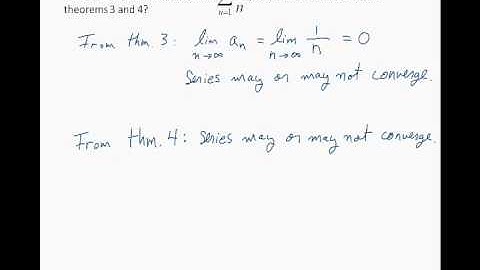 ∑ n=1 n
theorems 3 and 4?
From thm. 3: lim n→∞ aₙ = lim n→∞ 1/n = 0
Series may or may not converge.
From thm. 4: Series may or may not converge.